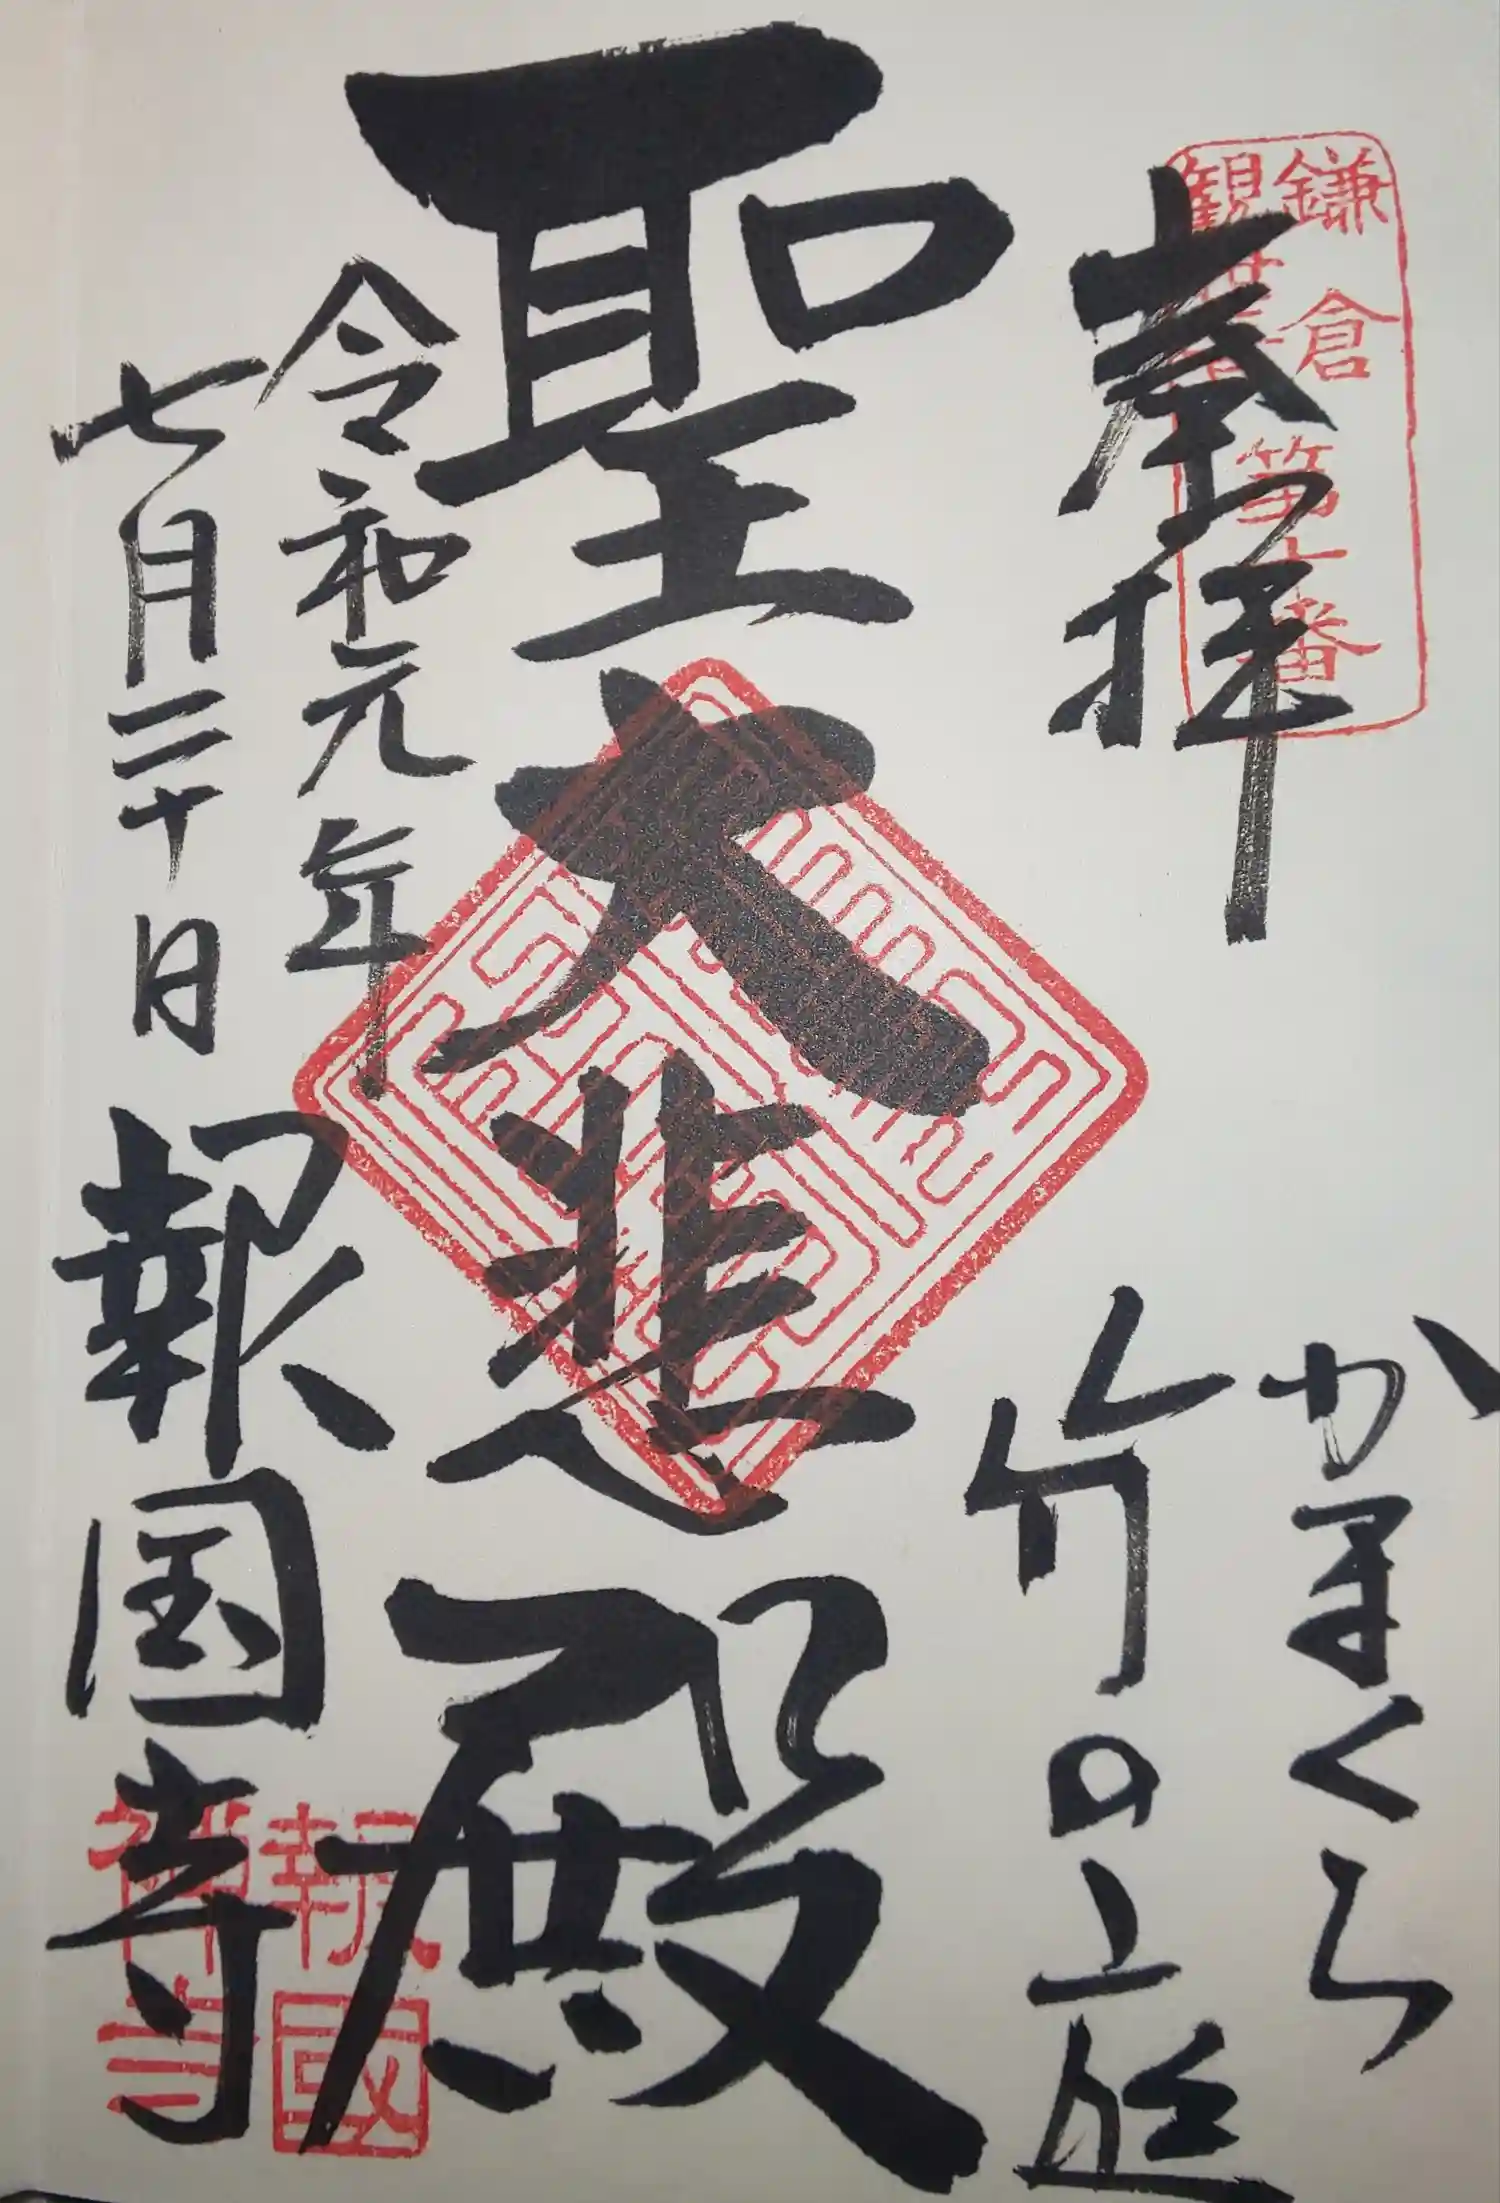 鎌倉
観世音
第十番
奉拝
かまくら
竹の庭
聖大悲殿
令和元年
七月二十日
報国寺
報國
禅寺